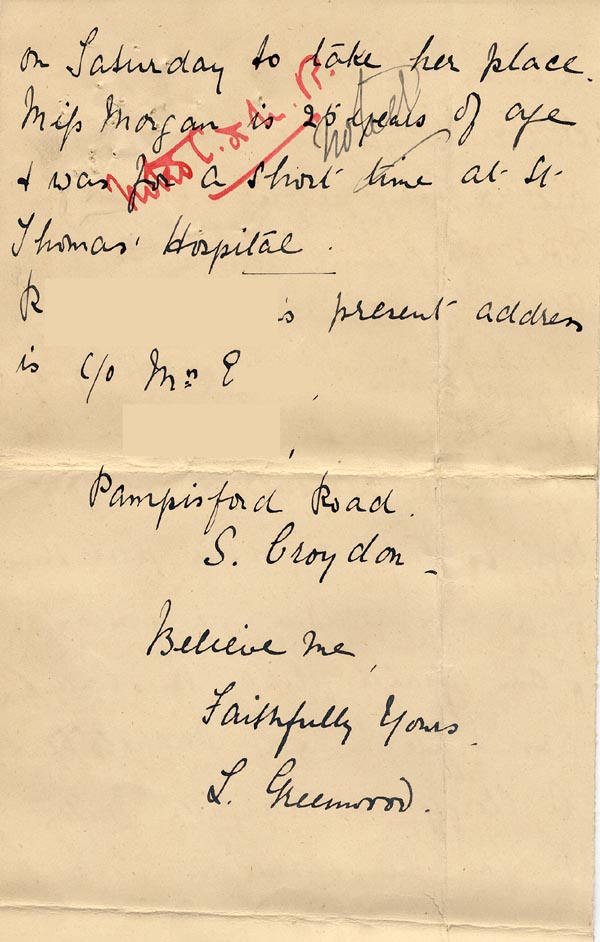 on Saturday to take her place.
Miss Morgan is 25 years of age
& was for a short time at St
Thomas' Hospital.
R s present address
is c/o Mrs E
,
,
Pampisford Road.
S. Croydon_
Believe me,
Faithfully Yours.
L. Greenwood.